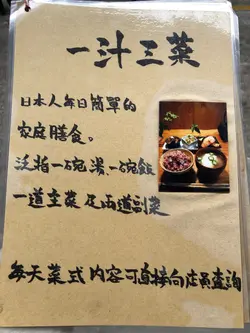 一汁三菜
日本人每日簡單的
家庭膳食。
泛指一碗湯、一碗飯
一道主菜及兩道副菜
每天菜式內容可直接向店員查詢